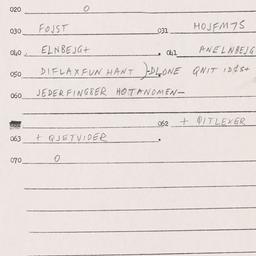 020 0
030 FOJST 031 HOJFM7S
040 ELNBEJG+ 041 ANELNBEJG
050 DIFLAXFUN HANT )-DLONE QNIT
060 JEDERFINGBER HOTTANOMEN-
062 + QITLEXER
063 + QJETVIDER
070 0